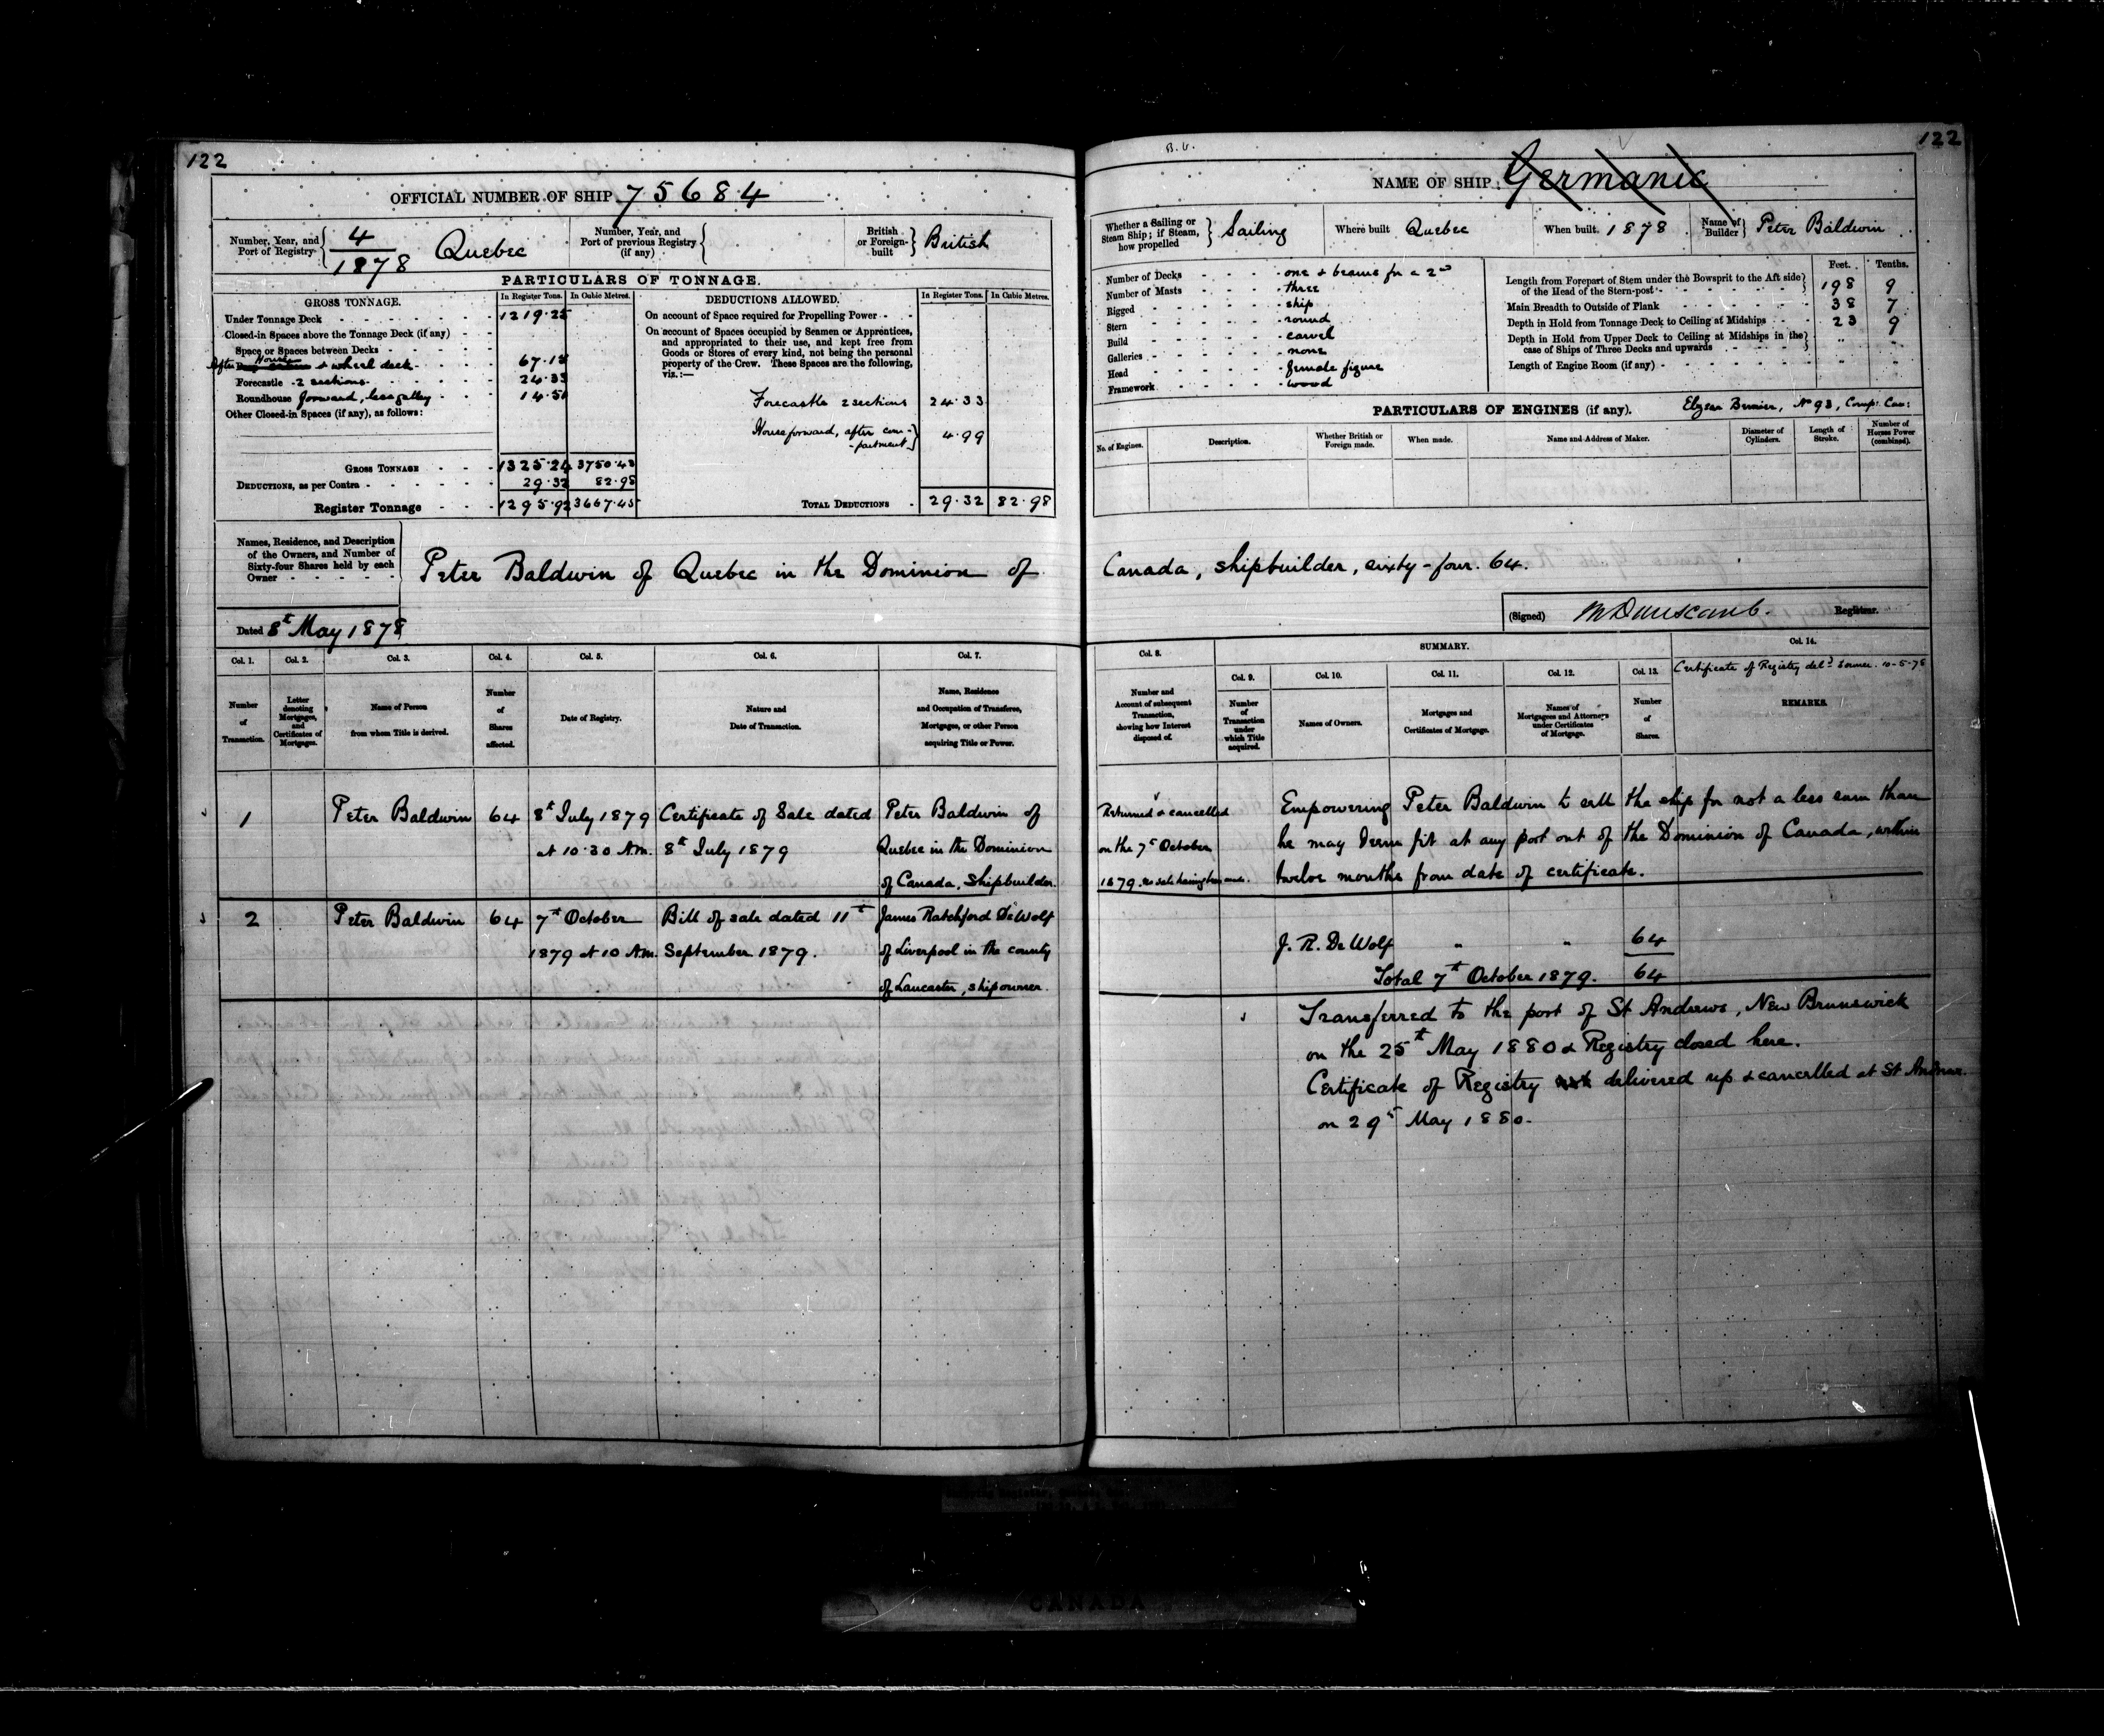 122
OFFICIAL NUMBER OF SHIP 75684
Number, Year, and Port of Registry 4/1878 Quebec
Number, Year, and Port of previous Registry (if any)
British or Foreign-built British
PARTICULARS OF TONNAGE.
GROSS TONNAGE. In Register Tons. In Cubic Metres.
Under Tonnage Deck - 1219.25
Closed-in Spaces above the Tonnage Deck (if any) -
Space or Spaces between Decks -
After House & wheel deck - 67.15
Forecastle - 2 sections - 24.33
Roundhouse forward, less galley - 14.51
Other Closed-in Spaces (if any), as follows:
GROSS TONNAGE - 1325.24 3750.43
DEDUCTIONS, as per Contra - 29.32 82.98
Register Tonnage - 1295.92 3667.45
DEDUCTIONS ALLOWED. In Register Tons. In Cubic Metres.
On account of Space required for Propelling Power -
On account of Spaces occupied by Seamen or Apprentices,
and appropriated to their use, and kept free from
Goods or Stores of every kind, not being the personal
property of the Crew. These Spaces are the following,
viz.:—
Forecastle 2 sections 24.33
House forward, after com-
-partment 4.99
TOTAL DEDUCTIONS - 29.32 82.98
Names, Residence, and Description
of the Owners, and Number of
Sixty-four Shares held by each
Owner
Peter Baldwin of Quebec in the Dominion of
Dated 8th May 1878
Col. 1. Col. 2. Col. 3. Col. 4. Col. 5. Col. 6. Col. 7.
Number of Transaction.
Letter denoting Mortgages, and Certificates of Mortgages.
Name of Person from whom Title is derived.
Number of Shares affected.
Date of Registry.
Nature and Date of Transaction.
Name, Residence and Occupation of Transferee, Mortgagee, or other Person acquiring Title or Power.
1 Peter Baldwin 64 8th July 1879 Certificate of Sale dated Peter Baldwin of
at 10.30 A.M. 8th July 1879 Quebec in the Dominion
of Canada, Shipbuilder.
2 Peter Baldwin 64 7th October Bill of sale dated 11th James Ratchford DeWolf
1879 at 10 A.M. September 1879. of Liverpool in the county
of Lancaster, shipowner.
B.V.
122
NAME OF SHIP: Germanic
Whether a Sailing or Steam Ship; if Steam, how propelled Sailing
Where built Quebec
When built. 1878
Name of Builder Peter Baldwin
Number of Decks - one & beams for a 2nd
Number of Masts - three
Rigged - ship
Stern - round
Build - carvel
Galleries - none
Head - female figure
Framework - wood
Feet. Tenths.
Length from Forepart of Stem under the Bowsprit to the Aft side of the Head of the Stern-post - 198 9
Main Breadth to Outside of Plank 38 7
Depth in Hold from Tonnage Deck to Ceiling at Midships 23 9
Depth in Hold from Upper Deck to Ceiling at Midships in the case of Ships of Three Decks and upwards " "
Length of Engine Room (if any) - " "
PARTICULARS OF ENGINES (if any). Elzear Bernier, No 93, Comp: Can:
No. of Engines.
Description.
Whether British or Foreign made.
When made.
Name and Address of Maker.
Diameter of Cylinders.
Length of Stroke.
Number of Horses Power (combined).
Canada, shipbuilder, sixty-four. 64.
(Signed) Registrar.
Col. 8. SUMMARY. Col. 14.
Col. 9. Col. 10. Col. 11. Col. 12. Col. 13.
Certificate of Registry deld 10-5-78
Number and Account of subsequent Transaction, showing how Interest disposed of.
Number of Transaction under which Title acquired.
Names of Owners.
Mortgages and Certificates of Mortgage.
Names of Mortgagees and Attorneys under Certificates of Mortgage.
Number of Shares.
REMARKS.
Returned & cancelled
on the 7th October
1879. no sale having been made.
Empowering Peter Baldwin to sell the ship for not a less sum than
he may deem fit at any port out of the Dominion of Canada, within
twelve months from date of certificate.
J. R. De Wolf " " 64
Total 7th October 1879. 64
Transferred to the port of St Andrews, New Brunswick
on the 25th May 1880 & Registry closed here.
Certificate of Registry delivered up & cancelled at St Andrews.
on 29th May 1880.
CANADA